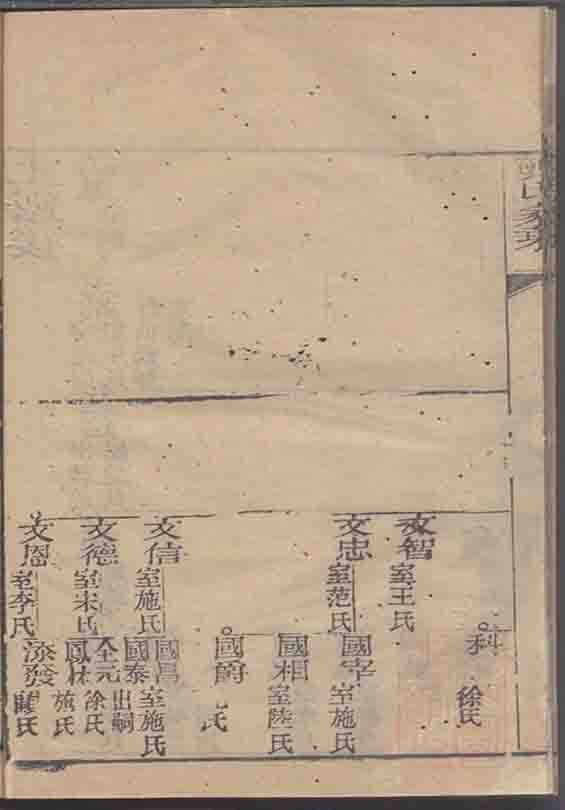 氏家乘
文智
室王氏
文忠
室范氏
文信
室施氏
文德
室宋氏
文恩
室李氏
科
徐氏
國宰
室施氏
國相
室陸氏
國爵
氏
國昌
室施氏
國泰
出嗣
全元
徐氏
鳳林
施氏
添發
氏